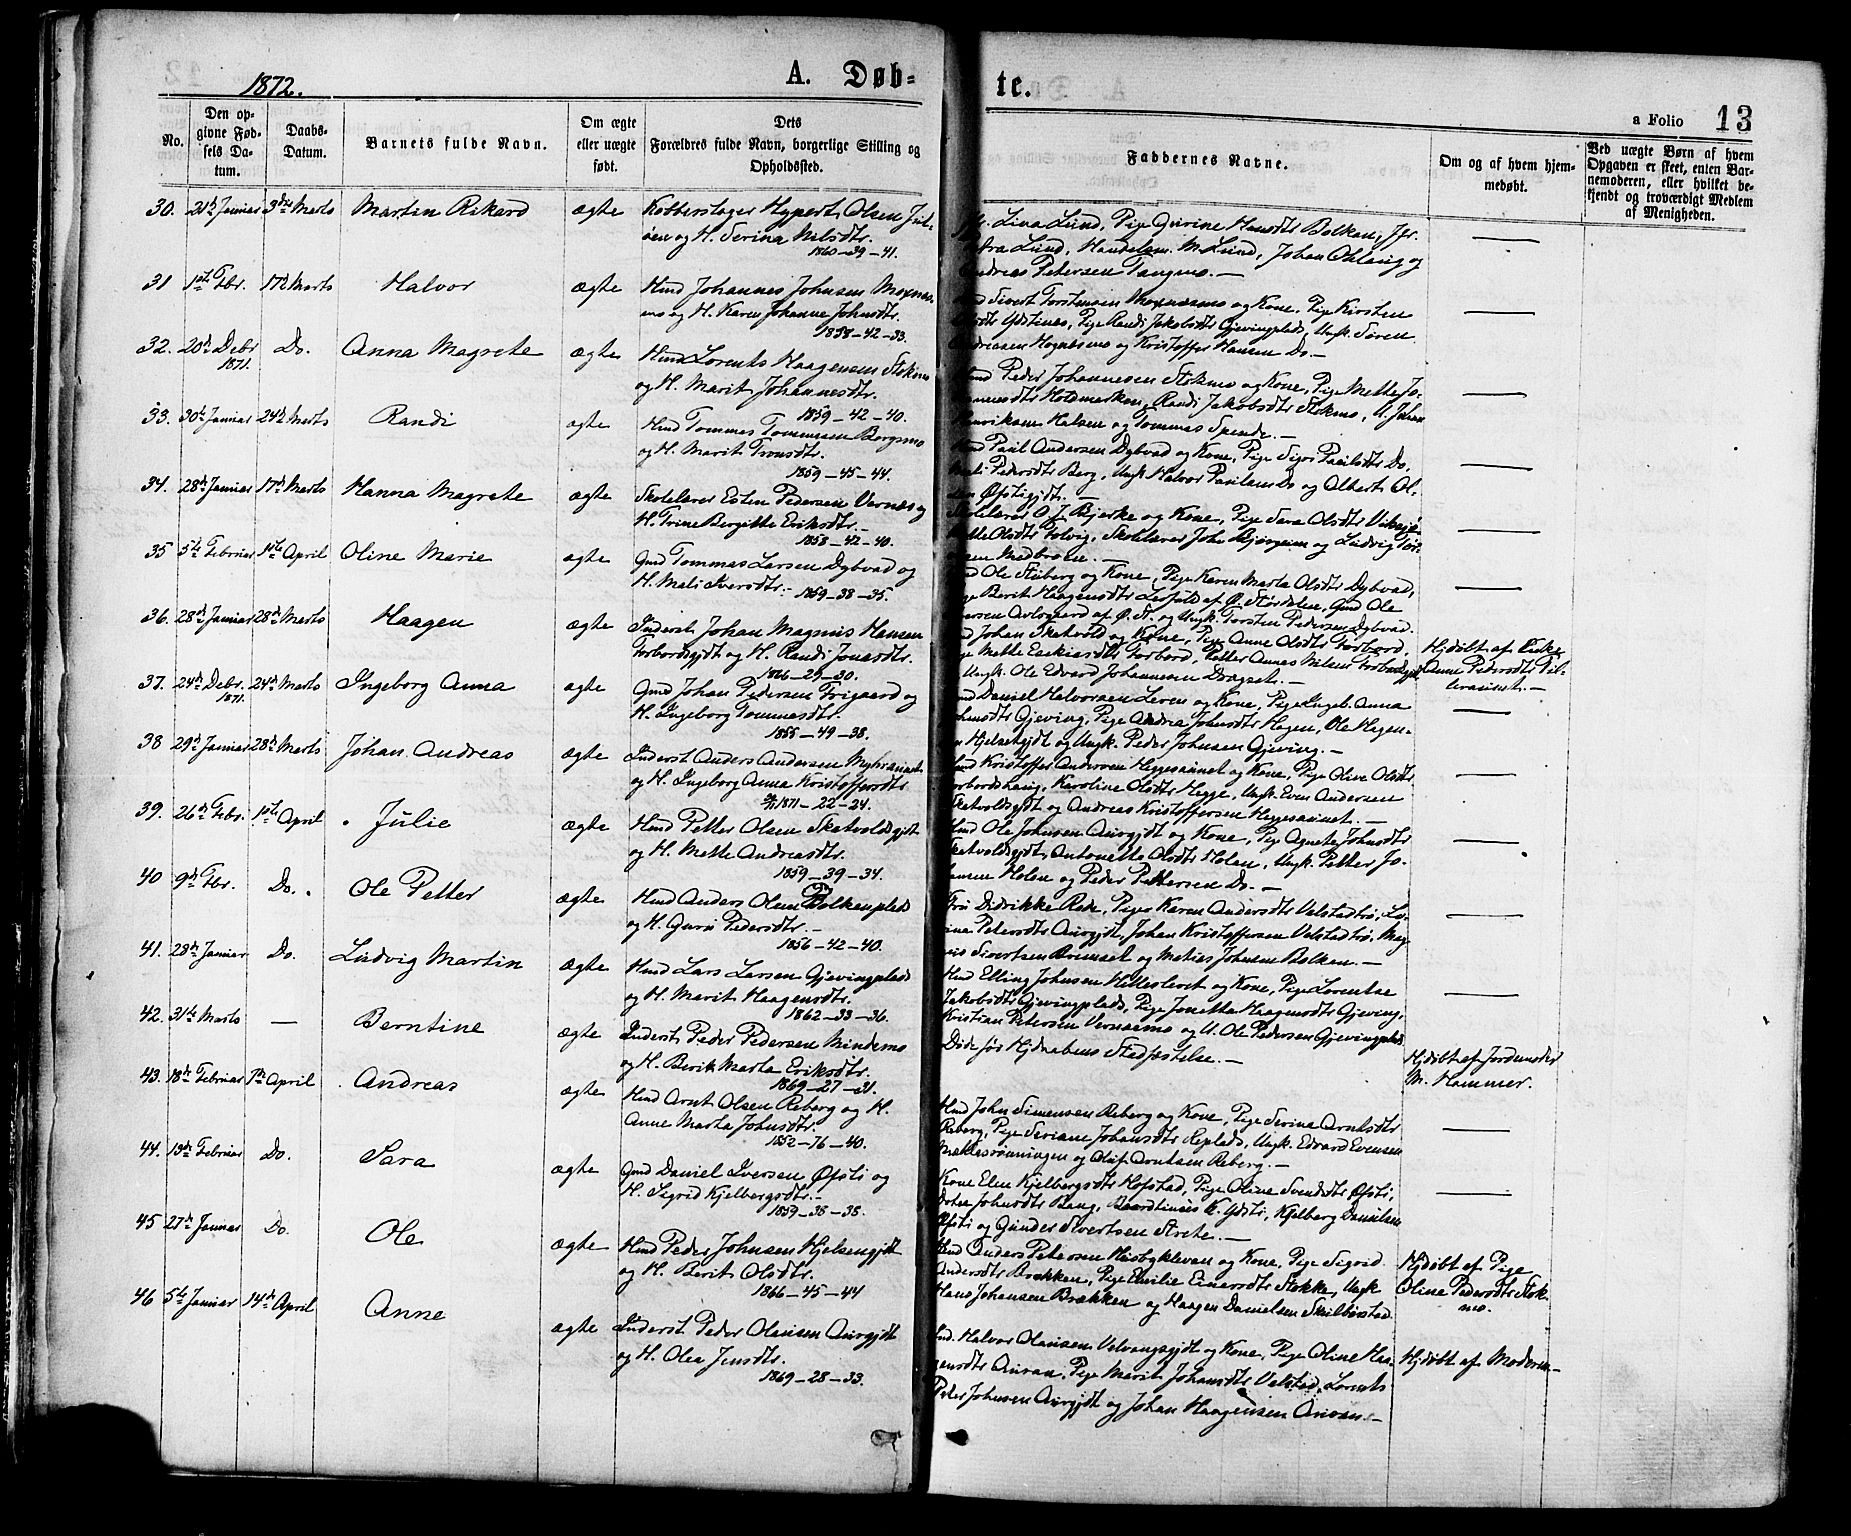 1872.
A. Døb-
te.
a Folio 13
No.
Den op-
givne Fød-
sels Da-
tum.
Daabs-
Datum.
Barnets fulde Navn.
Om ægte
eller uægte
født.
Dets
Forældres fulde Navn, borgerlige Stilling og
Opholdssted.
Faddernes Navne.
Om og af hvem hjem-
medøbt.
Ved uægte Børn af hvem
Opgaven er skeet, enten Bar-
nemoderen, eller hvilket be-
kjendt og troværdigt Medlem
af Menigheden.
30. 21de Januar 3die Marts Martin Rikard ægte Kobberslager Hypert Olsen
og H. Serina Nilsdtr.
1860-39-41.
Lina Lund, Pige Gurine Hansdtr Bolkan, Jfr.
Lund, Handelsm. M. Lund, Johan Oxlang og
Andreas Petersen Tangmo. —
31 1ste Fbr. 17de Marts Halvor ægte Hmd Johannes Johnsen Moxnes-
mo og H. Karen Johanne Johnsdtr.
1858-42-33.
Sivert Torstensen Moxnesmo og Kone, Pige Kirsten
Ydstines, Pige Randi Jakobsdtr Gjevingplads, Ungk. Søren
Andreasen Hognesmo og Kristoffer Hansen Do. —
32. 20de Debr. 1871. Do. Anna Magrete ægte Hmd Lorents Haagensen Stokmo
og H. Marit Johannesdtr.
1859-42-40.
Hmd Peder Johannesen Stokmo og Kone, Pige Mette Jo-
hannesdtr Holdmarken, Randi Jakobsdtr Stokmo, U. Johan
Henriksen Halsen og Tommas Spende. —
33. 30te Januar 24de Marts Randi ægte Hmd Tommas Tommesen Borgsmo
og H. Marit Tronsdtr.
1859-45-44.
Hmd Paul Andersen Dybvad og Kone, Pige Sigri Paulsdtr Do,
Mali Pedersdtr Berg, Ungk Halvor Paulsen Do og Albert Ol-
sen Øfstigjdt. —
34. 28de Januar 17de Marts Hanna Magrete ægte Skolelærer Esten Pedersen Vernes og
H. Trine Bergitte Eriksdtr. —
1858-42-40.
Skolelærer O. J. Bjerke og Kone, Pige Sara Olsdtr
Mette Olsdtr Folvig, Skolelærer John Bjørgum og Ludvig
35 5te Februar 1ste April Oline Marie ægte Gmd Tommas Larsen Dybvad og
H. Mali Iversdtr. — 1859-38-35.
Ole Stuberg og Kone, Pige Karen Marta Olsdtr Dybvad,
Berit Haagensdtr Leofald af Ø. Størdalen, Gmd Ole
Avelsgaard af Ø. St. og Ungk. Torsten Pedersen Dybvad.
36. 28de Januar 28de Marts Haagen ægte Inderst Johan Magnus Hansen
Forbordsgjdt og H. Randi Jonasdtr.
1866-29-30.
Johan Skatvold og Kone, Pige Anne Olsdtr Forbord,
Mette Esekiasdtr Forbord, Petter Annas Nilsen Forbordsgjdt
Ungk. Ole Edvard Johannesen Dragset. —
Hjdøbt af Enke
Anne Pedersdtr
37. 24de Debr. 1871. 24de Marts Ingeborg Anna ægte Gmd Johan Pedersen Trøgaard og
H. Ingeborg Tommasdtr.
1855-49-38.
Daniel Halvorsen Leren og Kone, Pige Ingeb. Anna
Johnsdtr Gjeving, Pige Andrea Johnsdtr Hegen, Ole Hagen-
Hjelsetgjdt og Ungk. Peder Johnsen Gjeving. —
38 29de Januar 28de Marts Johan Andreas ægte Inderst Anders Andersen Myhraunet
og H. Ingeborg Anna Kristoffersdtr
1871-22-24.
Hmd Kristoffer Andersen Heggesaunet og Kone, Pige Oline Olsdtr
Forbordshaug, Karoline Olsdtr Hegge, Ungk. Even Andersen
Skatvoldsgjdt og Andreas Kristoffersen Heggesaunet. —
39. 26de Febr. 1ste April Julie ægte Hmd Petter Olsen Skatvoldsgjdt
og H. Mette Andreasdtr.
1859-39-34.
Hmd Ole Johnsen Aurgjdt og Kone, Pige Agnete Johnsdtr
Skatvoldsgjdt, Antonette Olsdtr Holan, Ungk. Petter Jo-
hansen Holan og Peder Pettersen Do. —
40 9de Fbr. Do. Ole Petter ægte Hmd Anders Olsen Bolkenplads
og H. Guru Pedersdtr. —
1856-42-40.
Fru Didrikke Rode, Pige Karen Andersdtr Velstadtrø, Lo-
vine Petersdtr Aurgjdt, Johan Kristoffersen Velstadtrø, Mag-
nus Sivertsen Bremset og Matias Johnsen Bolkan. —
41. 28de Januar Do. Ludvig Martin ægte Hmd Lars Larsen Gjevingplads
og H. Marit Haagensdtr.
1862-33-36.
Hmd Elling Johnsen Hillesleret og Kone, Pige Lorentse
Jakobsdtr Gjevingplads, Pige Jonetta Haagensdtr Gjeving,
Kristian Petersen Vernesmo og U. Ole Pedersen Gjevingplads
42. 31te Marts — Berntine ægte Inderst Peder Pedersen Mindemo
og H. Berit Marta Eriksdtr.
1869-27-31.
Døde før Hjdaabens Stadfæstelse. —
Hjdøbt af Jordemoder
M. Hammer.
43. 18de Februar 7de April Andreas ægte Hmd Arnt Olsen Reberg og H.
Anne Marta Johnsdtr.
1852-76-40.
Hmd John Simensen Reberg og Kone, Pige Serina Arntsdtr
Reberg, Pige Seriane Johansdtr Replads, Ungk. Edvard Evensen
Mæklesrønningen og Oluf Arntsen Reberg. —
44. 19de Februar Do. Sara ægte Gmd Daniel Iversen Øfsti og
H. Sigrid Kjelbergsdtr. —
1859-38-38.
Kone Elen Kjelbergsdtr Hofstad, Pige Oline Svendsdtr Øfsti,
Dotea Johnsdtr Bang, Baardtinius K. Ydsti, Kjelberg Danielsen
Øfsti og Gunder Sivertsen Strete. —
45 27de Januar Do. Ole ægte Hmd Peder Johnsen Hjelsengjdt
og H. Berit Olsdtr.
1866-45-44
Hmd Anders Petersen Husbykleven og Kone, Pige Sigrid
Andersdtr Brækken, Pige Emilie Einersdtr Stokke, Ungk
Hans Johansen Brækken og Haagen Danielsen Skilbøstad
Hjdøbt af Pige
Olina Pedersdtr Stok-
mo.
46 5te Januar 14de April Anne ægte Inderst Peder Olausen Aurgjdt
og H. Olea Jensdtr.
1869-28-33.
Halvor Olausen Velvangsgjdt og Kone, Pige Oline Haa-
gensdtr Auran, Pige Marit Johansdtr Velstad, Lorents
Peter Johnsen Aurgjdt og Johan Haagensen Auran —
Hjdøbt af Moderen —